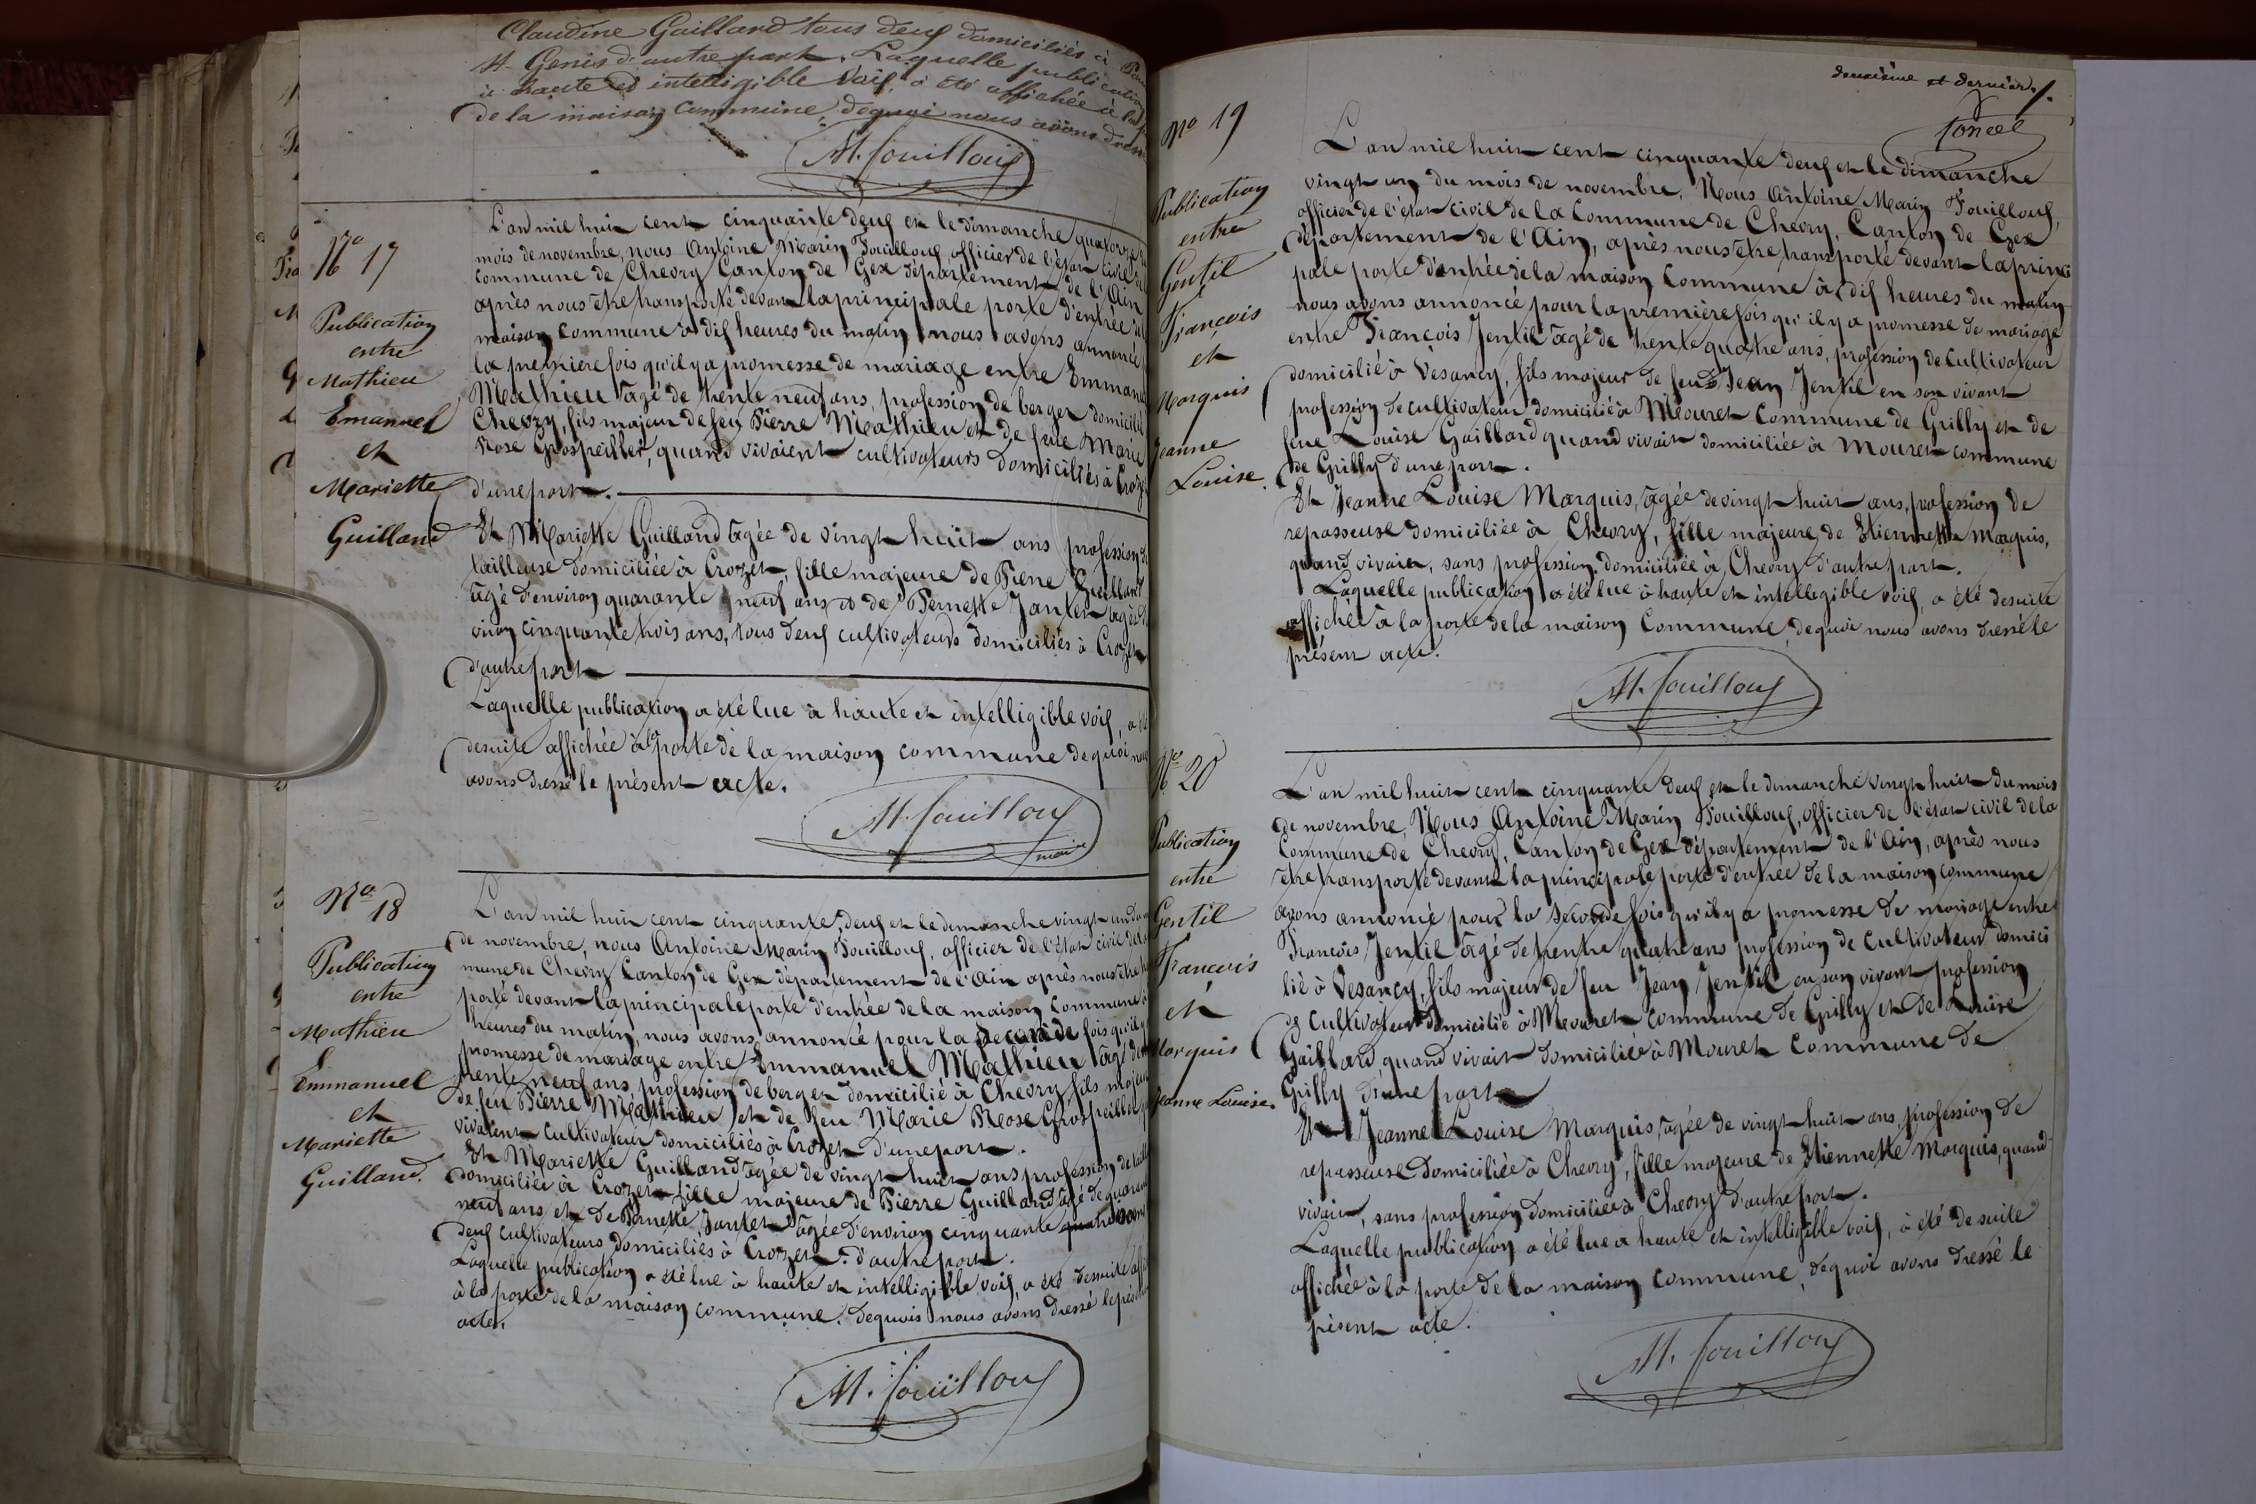 Claudine Gaillard tous deux domiciliés à
St Genis d'autre part. Laquelle publication
à haute et intelligible voix, a été affichée à la
de la maison commune, dequoi nous avons
M. Fouilloux
No 17
Publication
entre
Mathieu
Emanuel
et
Mariette
Guilland
L'an mil huit cent cinquante deux et le dimanche quatorze
mois de novembre, nous Antoine Marin Fouilloux, officier de l'état civil
commune de Chevry Canton de Gex département de l'Ain
après nous être transporté devant la principale porte d'entrée
maison commune à dix heures du matin nous avons annoncé
la première fois qu'il y a promesse de mariage entre Emmanuel
Mathieu âgé de trente neuf ans, profession de berger domicilié
Chevry, fils majeur de feu Pierre Mathieu et de feue Marie
Rose Grospeiller, quand vivaient cultivateurs domiciliés à Crozet
d'une part.
Et Mariette Guilland âgée de vingt huit ans profession
tailleuse domiciliée à Crozet, fille majeure de Pierre Guilland
âgé d'environ quarante neuf ans et de Pernette Jantet âgée
viron cinquante trois ans, tous deux cultivateurs domiciliés à Crozet
d'autre part
Laquelle publication a été lue à haute et intelligible voix, a
desuite affichée à la porte de la maison commune dequoi nous
avons dressé le présent acte.
M. Fouilloux
maire
No 18
Publication
entre
Mathieu
Emmanuel
et
Mariette
Guilland.
L'an mil huit cent cinquante deux et le dimanche vingt un
de novembre, nous Antoine Marin Fouilloux, officier de l'état civil
mune de Chevry Canton de Gex département de l'Ain après nous être
porté devant la principale porte d'entrée de la maison commune
heures du matin, nous avons annoncé pour la seconde fois qu'il y a
promesse de mariage entre Emmanuel Mathieu âgé de
trente neuf ans, profession de berger domicilié à Chevry, fils majeur
de feu Pierre Mathieu et de feu Marie Rose Grospeiller
vivaient cultivateur domiciliés à Crozet d'une part.
Et Mariette Guilland âgée de vingt huit ans profession de
domiciliée à Crozet fille majeure de Pierre Guilland âgé de quarante
neuf ans et de Pernette Jantet âgée d'environ cinquante
deux cultivateurs domiciliés à Crozet. d'autre part.
Laquelle publication a été lue à haute et intelligible voix, a été desuite
à la porte de la maison commune. Dequois nous avons dressé le présent
acte.
M. Fouilloux
deuxième et dernier
No 19
Publication
entre
Gentil
François
et
Marquis
Jeanne
Louise.
L'an mil huit cent cinquante deux et le dimanche
vingt un du mois de novembre, Nous Antoine Marin Fouilloux,
officier de l'état civil de la Commune de Chevry, Canton de Gex
département de l'Ain, après nous être transporté devant la princi
pale porte d'entrée de la maison commune à dix heures du matin
nous avons annoncé pour la première fois qu'il y a promesse de mariage
entre François Jentil âgé de trente quatre ans, profession de cultivateur
domicilié à Vesancy, fils majeur de feu Jean Jentil en son vivant
profession de cultivateur domicilié à Mouret commune de Grilly et de
feue Louise Gaillard quand vivait domiciliée à Mouret commune
de Grilly d'une part.
Et Jeanne Louise Marquis, âgée de vingt huit ans, profession de
repasseuse domiciliée à Chevry, fille majeure de Etiennette Marquis,
quand vivait, sans profession, domiciliée à Chevry d'autre part.
Laquelle publication a été lue à haute et intelligible voix, a été desuite
affichée à la porte de la maison Commune, dequoi nous avons dressé le
présent acte.
M. Fouilloux
No 20
Publication
entre
Gentil
François
et
Marquis
Jeanne Louise.
L'an mil huit cent cinquante deux et le dimanche vingt huit du mois
de novembre, Nous Antoine Marin Fouilloux, officier de l'état civil de la
Commune de Chevry, Canton de Gex département de l'Ain, après nous
être transporté devant la principale porte d'entrée de la maison commune
avons annoncé pour la seconde fois qu'il y a promesse de mariage entre
François Jentil âgé de trente quatre ans profession de cultivateur domici
lié à Vesancy, fils majeur de feu Jean Jentil en son vivant profession
de cultivateur domicilié à Mouret commune de Grilly et de Louise
Gaillard quand vivait domiciliée à Mouret commune de
Grilly d'une part
Et Jeanne Louise Marquis, âgée de vingt huit ans, profession de
repasseuse domiciliée à Chevry, fille majeure de Etiennette Marquis, quand
vivait, sans profession domiciliée à Chevry d'autre part.
Laquelle publication a été lue à haute et intelligible voix, à été de suite
affichée à la porte de la maison commune, dequoi avons dressé le
présent acte.
M. Fouilloux